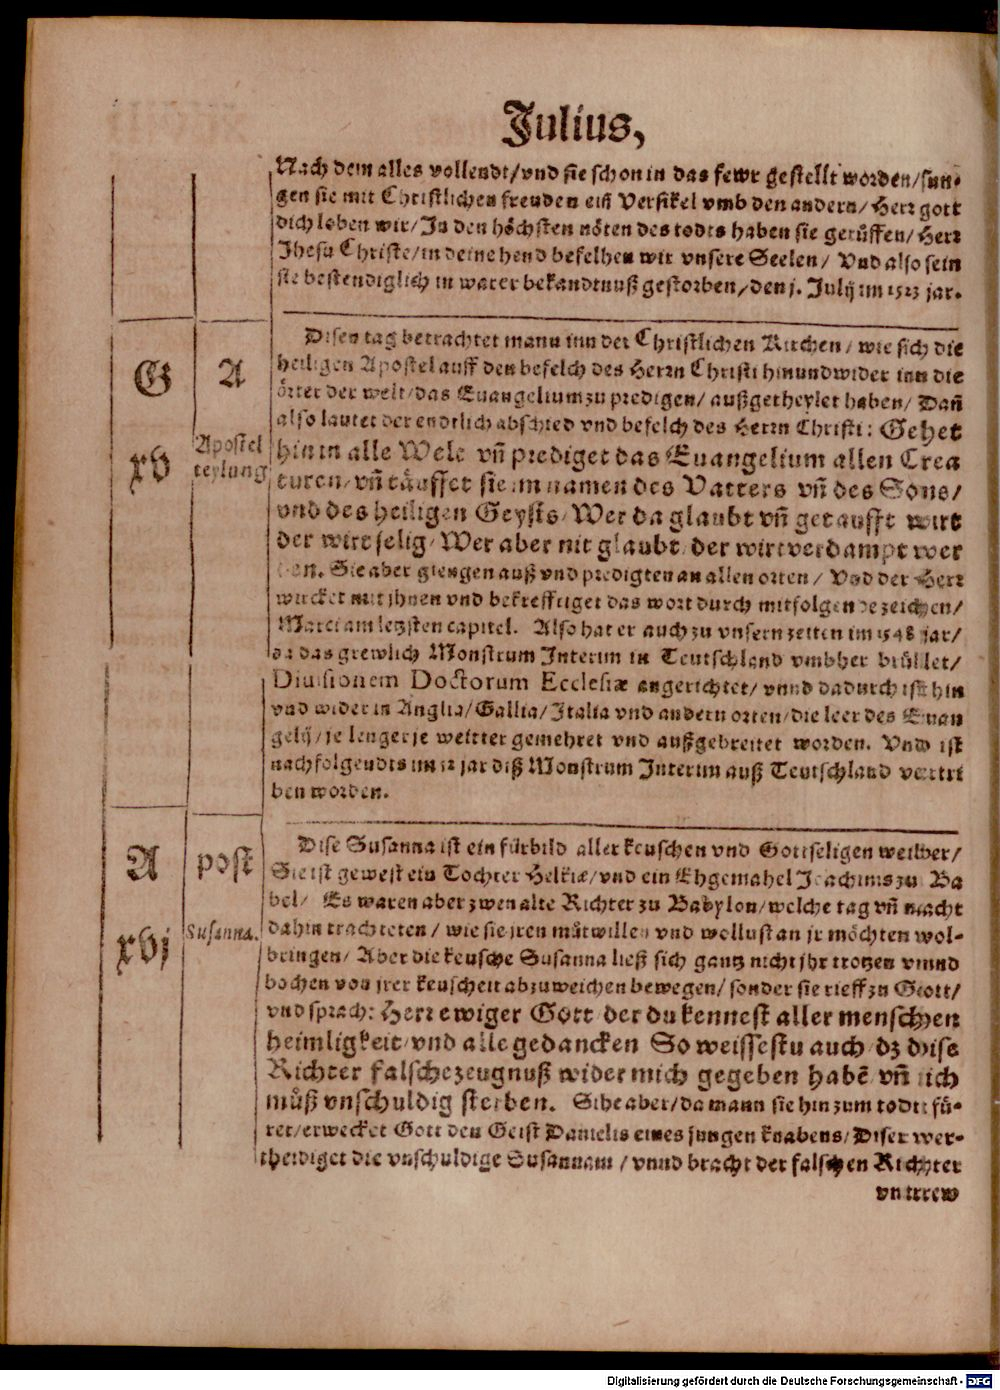 Julius,
Nach dem alles vollendt/vnd sie schon in das fewr gestellt worden/sun-
gen sie mit Christlichen freuden ein Versikel vmb den andern/Herr gott
dich loben wir/In den höchsten nöten des todts haben sie gerüffen/Herr
Jhesu Christe/in deine hend befelhen wir vnsere Seelen/ Vnd also sein
sie bestendiglich in warer bekandtnuß gestorben/den j. Julij im 1523 jar.
Disen tag betrachtet mann inn der Christlichen Kirchen/wie sich die
heiligen Apostel auff den befelch des Herrn Christi hin und wider inn die
örter der welt/das Euangelium zu predigen/außgetheylet haben/ Dañ
also lautet der endtlich abschied vnd befelch des Herrn Christi: Gehet
hin in alle Welt vñ prediget das Euangelium allen Crea
turen/vñ täuffet sie im namen des Vatters vñ des Sons/
vnd des heiligen Geysts/Wer da glaubt vñ getaufft wirt
der wirt selig/Wer aber nit glaubt/der wirt verdampt wer
den. Sie aber giengen auß vnd predigten an allen orten/ Vnd der Herr
wircket mit jhnen vnd bekrefftiget das wort durch mitfolgende zeichen/
Marci am letzsten capitel. Also hat er auch zu vnsern zeiten im 1548 jar/
da das grewlich Monstrum Interim in Teutschland vmbher brüllet/
Diuisionem Doctorum Ecclesiæ angerichtet/vnnd dadurch ist hin
vnd wider in Anglia/Gallia/Italia vnd andern orten/die leer des Euan
gelij/je lenger je weitter gemehret vnd außgebreitet worden. Vnd ist
nachfolgendts im 52 jar diß Monstrum Interim auß Teutschland vertri
ben worden.
G A
xv Apostel
teylung
Dise Susanna ist ein fürbild aller keuschen vnd Gottseligen weiber/
Sie ist gewest ein Tochter Helkiæ/vnd ein Ehgemahel Joachims zu Ba
bel/ Es waren aber zwen alte Richter zu Babylon/welche tag vñ nacht
dahin trachteten/wie sie jren mütwillen vnd wollust an jr möchten vol-
bringen/Aber die keusche Susanna ließ sich gantz nicht jhr trotzen vnnd
bochen von jrer keuscheit abzuweichen bewegen/sonder sie rieff zu Gott/
vnd sprach: Herr ewiger Gott der du kennest aller menschen
heimligkeit/vnd alle gedancken So weissestu auch/dz dise
Richter falsche zeugnuß wider mich gegeben habē vñ ich
müß vnschuldig sterben. Sihe aber/da mann sie hin zum todt fü-
ret/erwecket Gott den Geist Danielis eines jungen knabens/Diser ver-
theidiget die vnschuldige Susannam/vnnd bracht der falschen Richter
vntrew
A post
xvj Susanna.
Digitalisierung gefördert durch die Deutsche Forschungsgemeinschaft - DFG